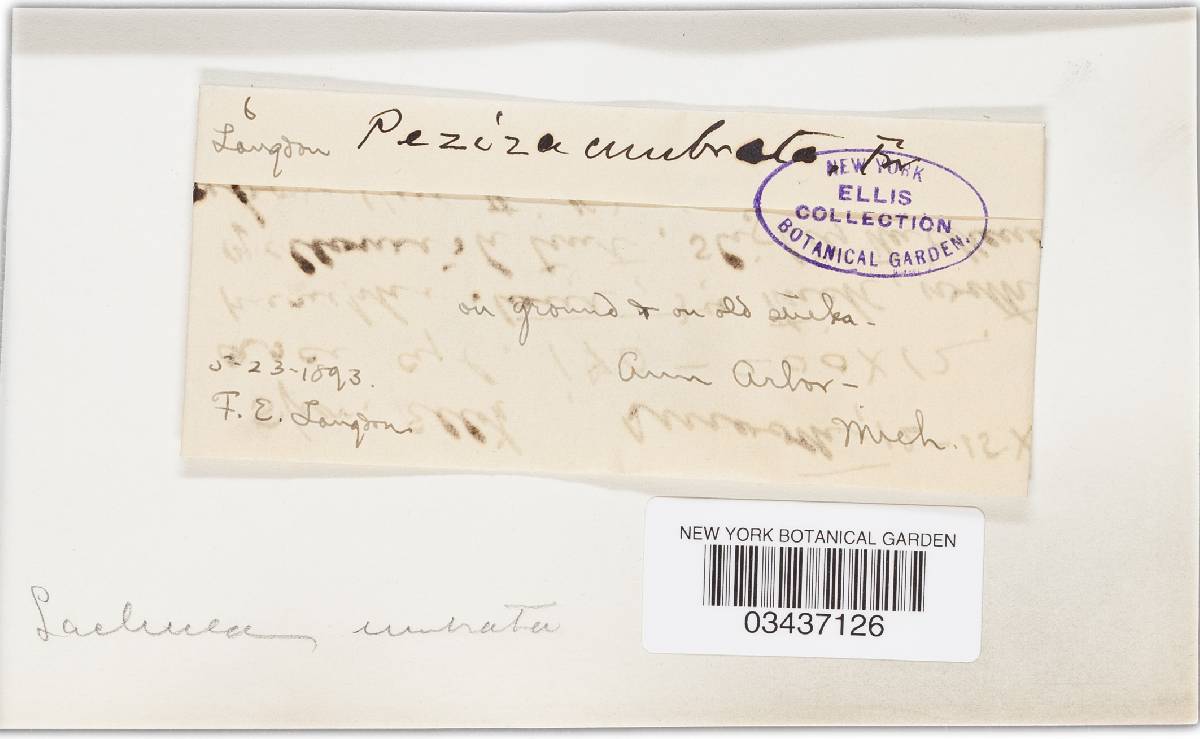 6
Langdon Peziza umbrata, Fr
NEW YORK
ELLIS
COLLECTION
BOTANICAL GARDEN.
on ground & on old sticks -
5-23-1893.
Ann Arbor -
F. E. Langdon.
Mich.
NEW YORK BOTANICAL GARDEN
03437126
Lachnea umbrata